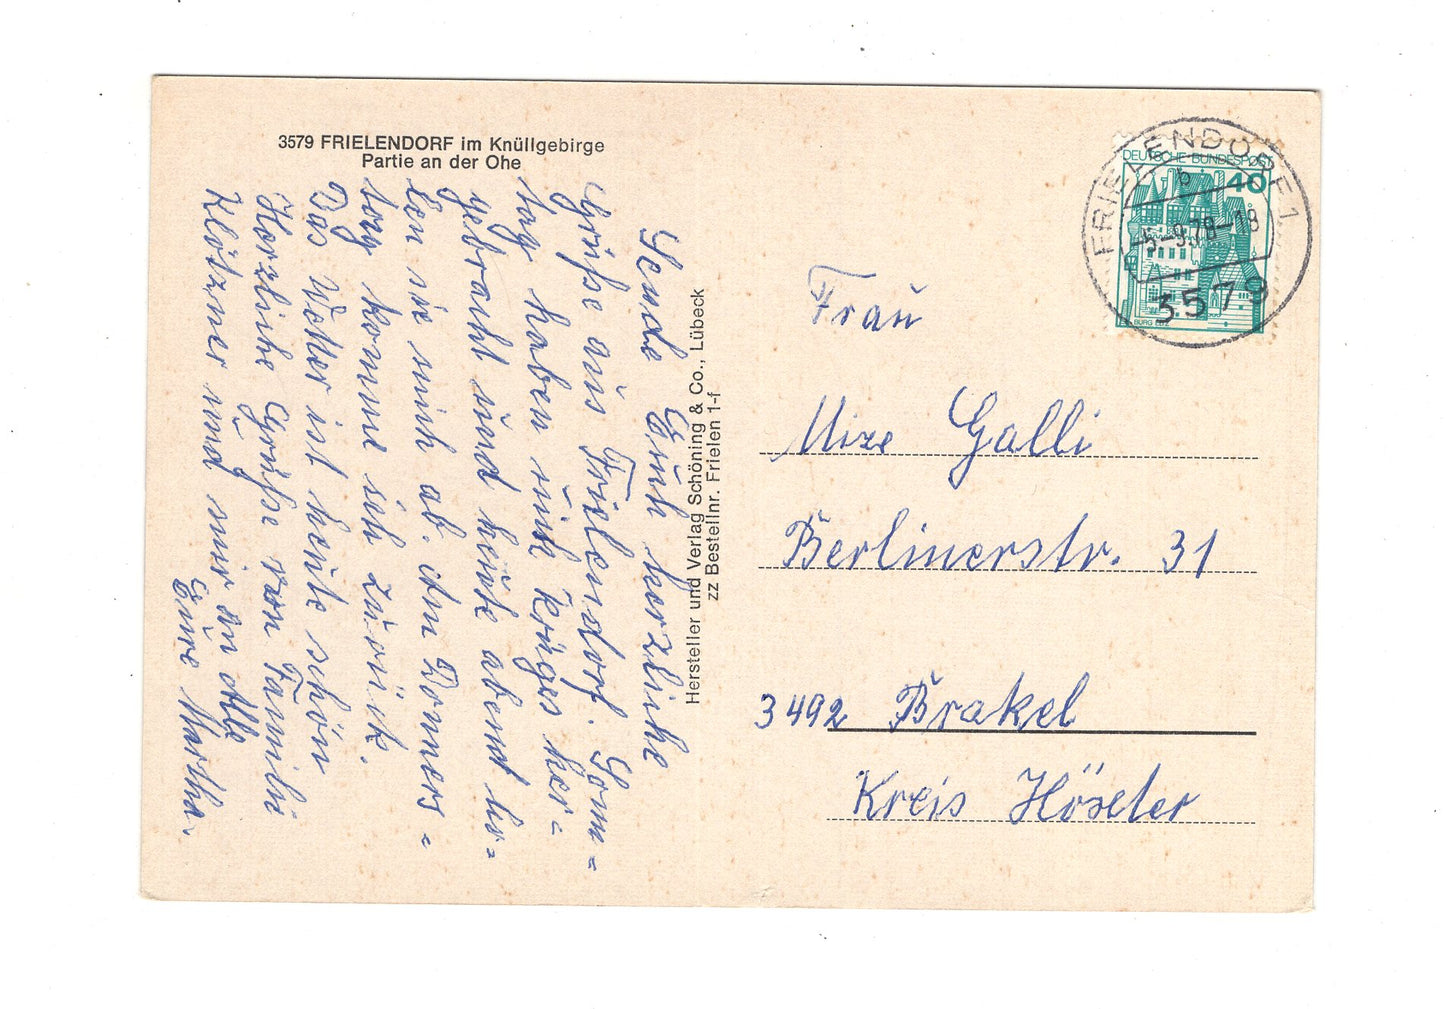 3579 FRIELENDORF im Knüllgebirge
Partie an der Ohe
Sende Euch herzliche
Grüße aus Frielendorf. Sonn=
tag haben mich Krüges her=
gebracht und heute abend ho=
len sie mich ab. Am Donners=
tag komme ich zurück.
Das Wetter ist heute schön
Herzliche Grüße von Familie
Klötzner und mir an Alle
Eure Martha.
Hersteller und Verlag Schöning & Co., Lübeck
zz Bestellnr. Frielen 1-f
DEUTSCHE BUNDESPOST
40
BURG ELTZ
FRIELENDORF 1
b
3579
Frau
Mize Galli
Berlinerstr. 31
3492 Brakel
Kreis Höxter